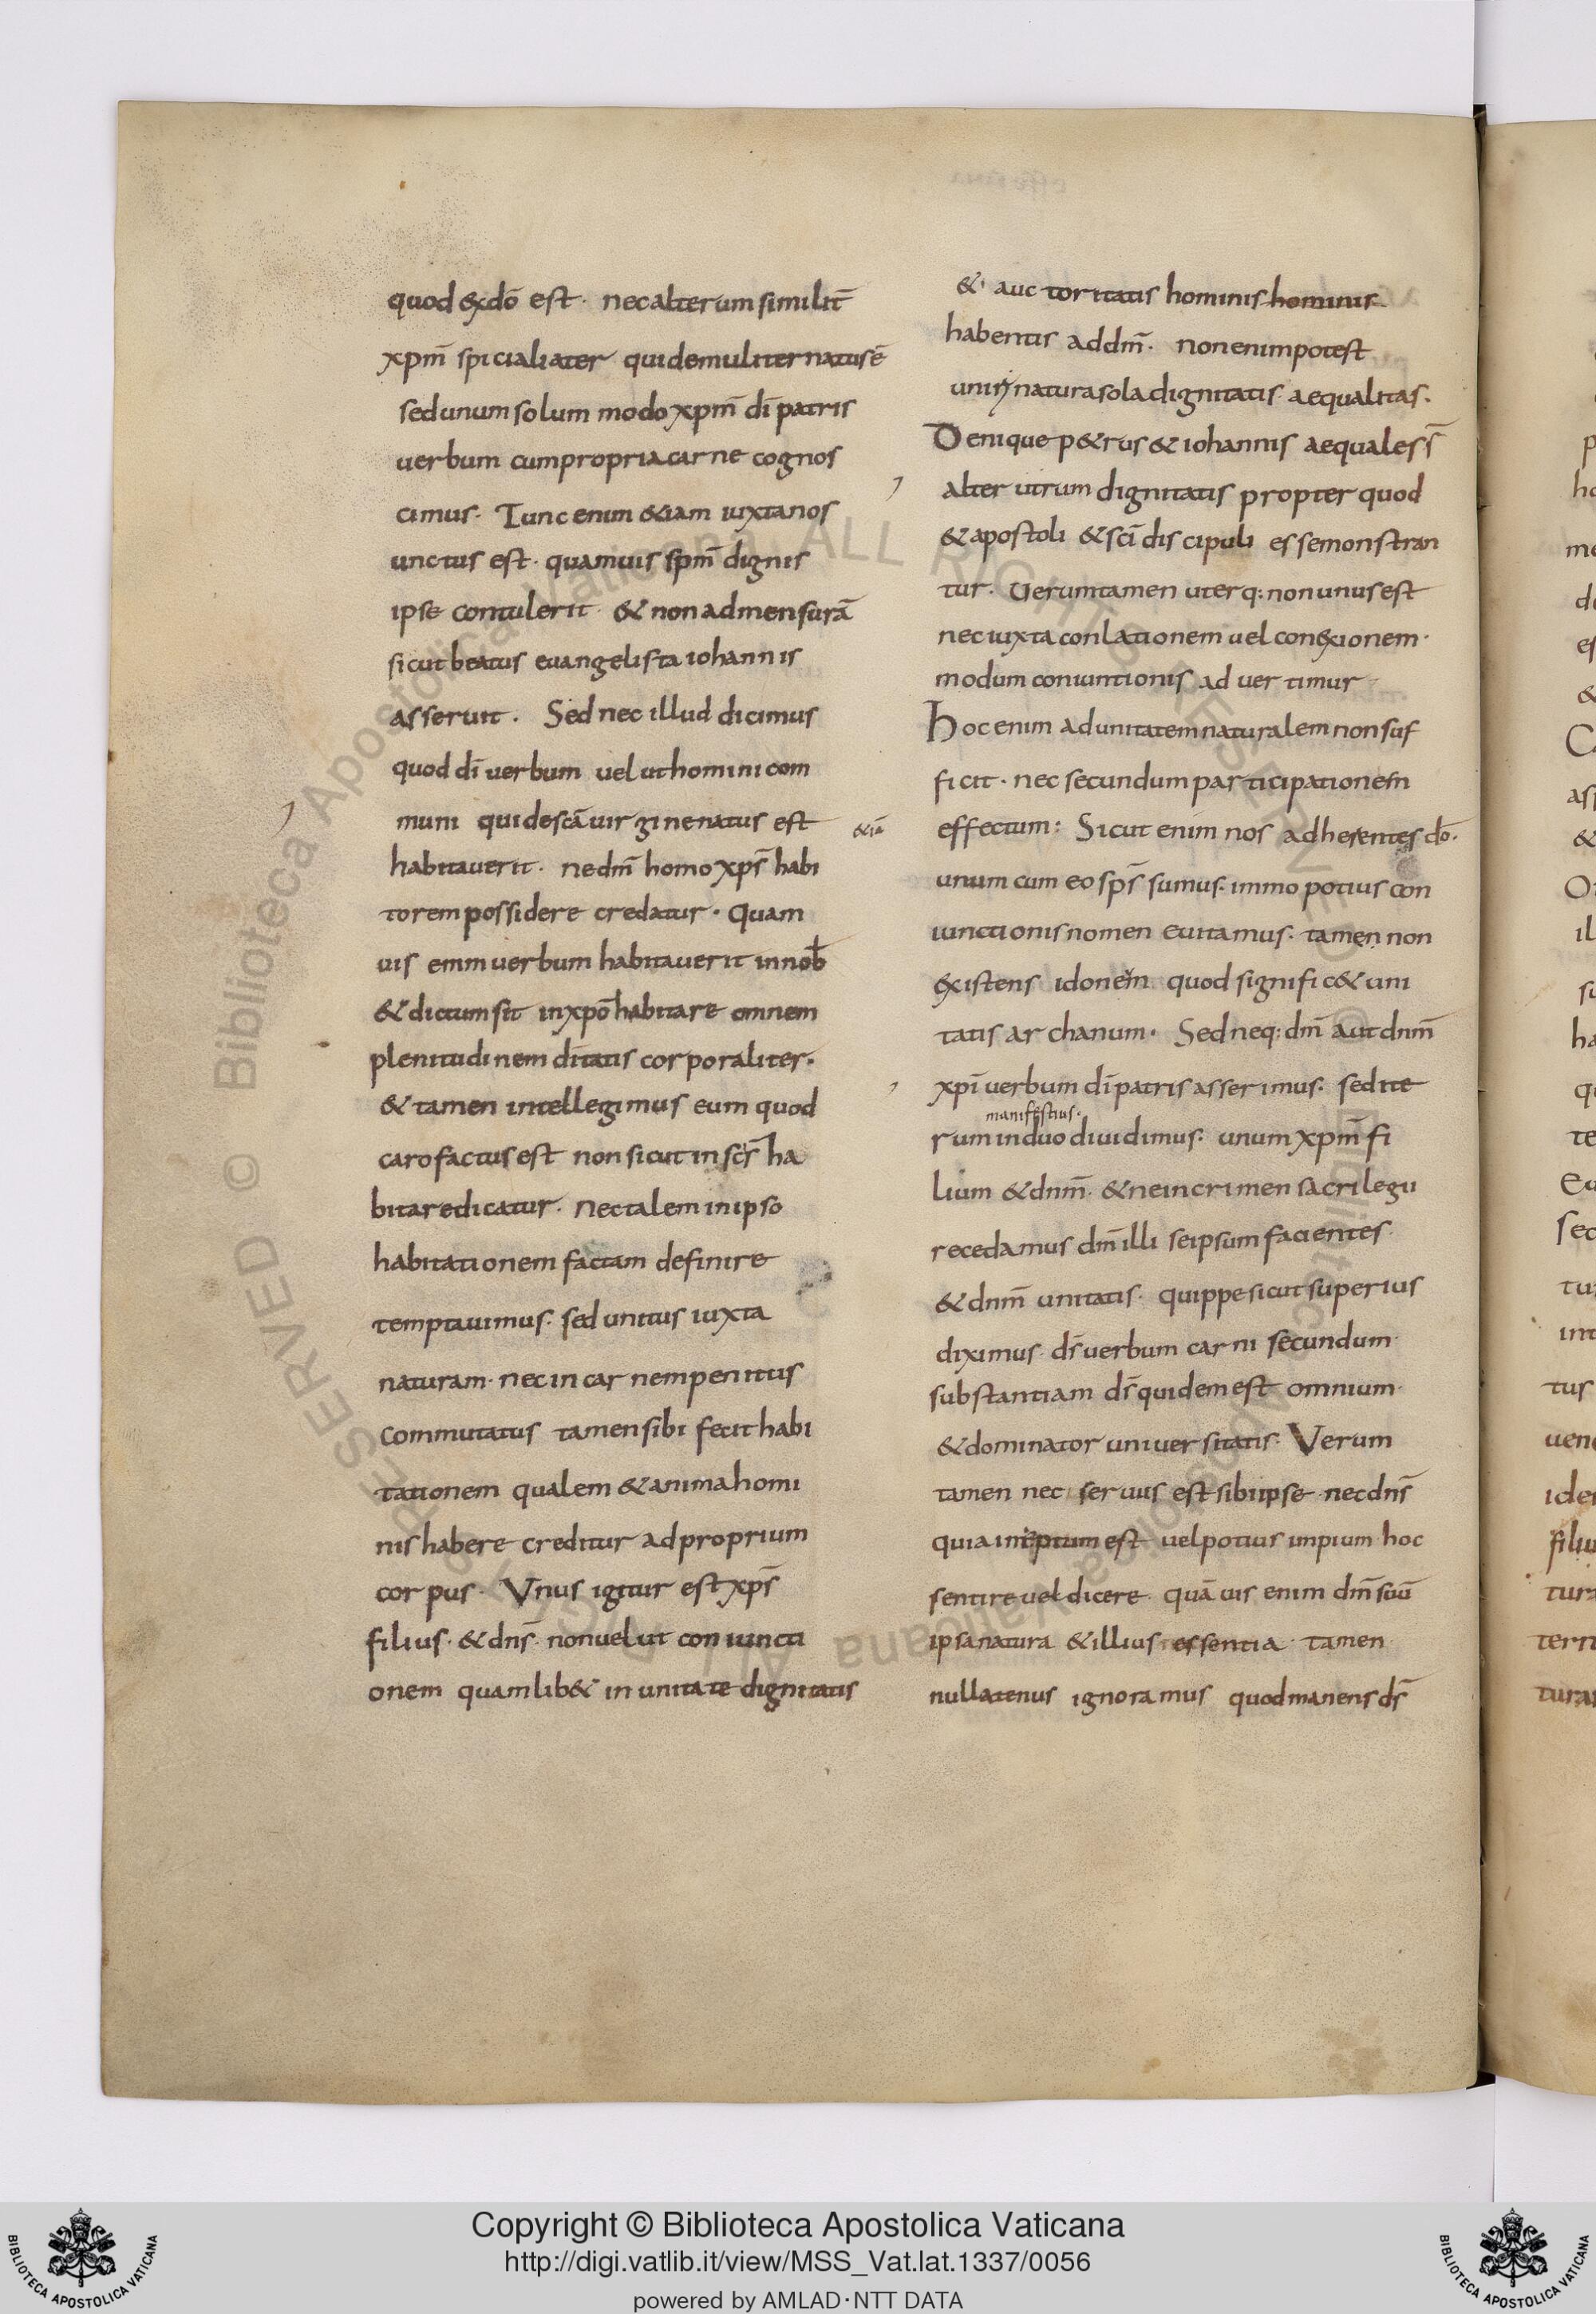 quod & xdō est · nec alterum similit̄
xpm̄ spicialiater qui de muliter natus ē
sed unum solum modo xpm̄ dī patris
uerbum cum propria carne cognos
cimus · Tunc enim &iam iuxta nos
unctus est · quamuis spm̄ dignis
ipse contulerit · & non ad mensurā
sicut beatus euangelista iohannis
asseruit . Sed nec illud dicimus
quod dī uerbum uel ut homini com
muni qui de scā uirgine natus est
habitauerit · ne dm̄ homo xps̄ habi
torem possidere credatur · Quam
uis enim uerbum habitauerit in nob̄
& dictum sit in xpō habitare omnem
plenitudinem dītatis corporaliter ·
& tamen intellegimus eum quod
caro factus est non sicut in scīs ha
bitare dicatur · Nec talem in ipso
habitationem factam definire
temptauimus : sed unitus iuxta
naturam · nec in carnem penitus
commutatus tamen sibi fecit habi
tationem qualem & anima homi
nis habere creditur ad proprium
corpus · Vnus igitur est xps̄
filius · & dns̄ · non uelut coniuncti
onem quamlib& in unitate dignitatis
& auctoritatis hominis hominis
habentis ad dm̄ · non enim potest
uniri natura sola dignitatis aequalitas .
Denique p&rus & iohannis aequales s̄
alter utrum dignitatis propter quod
& apostoli & scī discipuli esse monstran
tur · Uerumtamen uterq: non unus est
nec iuxta conlationem uel con&xionem ·
modum coniuntionis aduertimur
hoc enim ad unitatem naturalem non suf
ficit · nec secundum participationem
&iā
effectum : Sicut enim nos adherentes dō ·
unum cum eo sps̄ sumus : immo potius con
iunctionis nomen euitamus · tamen non
&xistens idonem quod signific& uni
tatis archanum · Sed neq: dm̄ aut dnm̄
xpī uerbum dī patris asserimus : sed ite
manifestius ·
rum in duo diuidimus : unum xpm̄ fi
lium & dnm̄ · & ne in crimen sacrilegii
recedamus dm̄ illi seipsum facientes ·
& dnm̄ unitatis · quippe sicut superius
diximus · ds̄ uerbum carni secundum
substantiam ds̄ quidem est omnium ·
& dominator uniuersitatis : Verum
tamen nec seruus est sibi ipse nec dns̄
quia ineptum est uel potius impium hoc
sentire uel dicere · quā uis enim dm̄ suū
ipsa natura & illius essentia · tamen
nullatenus ignoramus quod manens ds̄
Copyright © Biblioteca Apostolica Vaticana
http://digi.vatlib.it/view/MSS_Vat.lat.1337/0056
powered by AMLAD·NTT DATA
BIBLIOTECA APOSTOLICA VATICANA
BIBLIOTECA APOSTOLICA VATICANA